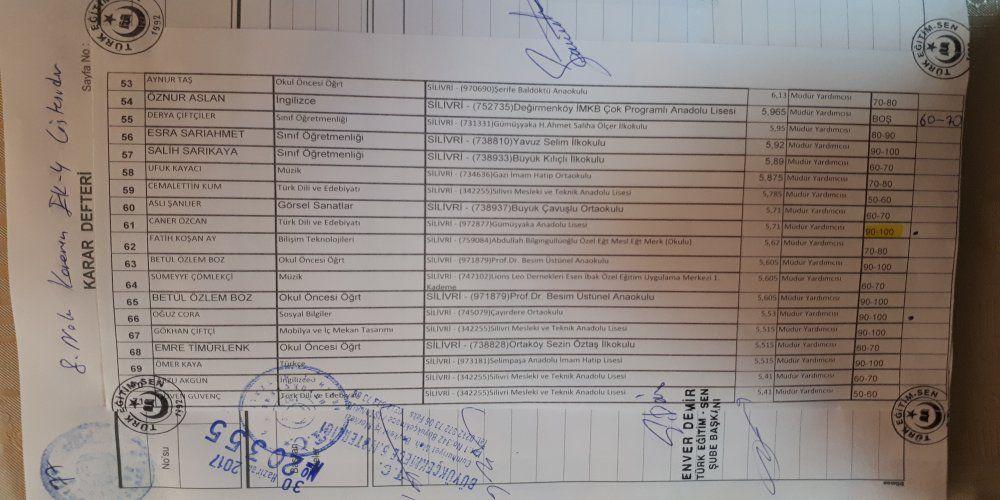 TÜRK EĞİTİM-SEN
1992
TÜRK EĞİTİM-SEN
Sayfa No.:
KARAR DEFTERİ
53 AYNUR TAŞ Okul Öncesi Öğrt SİLİVRİ - (970690)Şerife Baldöktü Anaokulu 6,13 Müdür Yardımcısı 70-80
54 ÖZNUR ASLAN İngilizce SİLİVRİ - (752735)Değirmenköy İMKB Çok Programlı Anadolu Lisesi 5,965 Müdür Yardımcısı BOŞ 60-70
55 DERYA ÇİFTÇİLER Sınıf Öğretmenliği SİLİVRİ - (731331)Gümüşyaka H.Ahmet Saliha Ölçer İlkokulu 5,95 Müdür Yardımcısı 80-90
56 ESRA SARIAHMET Sınıf Öğretmenliği SİLİVRİ - (738810)Yavuz Selim İlkokulu 5,92 Müdür Yardımcısı 90-100
57 SALİH SARIKAYA Sınıf Öğretmenliği SİLİVRİ - (738933)Büyük Kılıçlı İlkokulu 5,89 Müdür Yardımcısı 60-70
58 UFUK KAYACI Müzik SİLİVRİ - (734636)Gazi İmam Hatip Ortaokulu 5,875 Müdür Yardımcısı 70-80
59 CEMALETTİN KUM Türk Dili ve Edebiyatı SİLİVRİ - (342255)Silivri Mesleki ve Teknik Anadolu Lisesi 5,785 Müdür Yardımcısı 50-60
60 ASLI ŞANLIER Görsel Sanatlar SİLİVRİ - (738937)Büyük Çavuşlu Ortaokulu 5,71 Müdür Yardımcısı 60-70
61 CANER ÖZCAN Türk Dili ve Edebiyatı SİLİVRİ - (972877)Gümüşyaka Anadolu Lisesi 5,71 Müdür Yardımcısı 90-100
62 FATİH KOŞAN AY Bilişim Teknolojileri SİLİVRİ - (759084)Abdullah Bilgingüllüoğlu Özel Eğt Mesl Eğt Merk (Okulu) 5,62 Müdür Yardımcısı 70-80
63 BETÜL ÖZLEM BOZ Okul Öncesi Öğrt SİLİVRİ - (971879)Prof.Dr. Besim Üstünel Anaokulu 5,605 Müdür Yardımcısı 90-100
64 SÜMEYYE ÇÖMLEKÇİ Müzik SİLİVRİ - (747102)Lions Leo Dernekleri Esen İbak Özel Eğitim Uygulama Merkezi 1. Kademe 5,605 Müdür Yardımcısı 60-70
65 BETÜL ÖZLEM BOZ Okul Öncesi Öğrt SİLİVRİ - (971879)Prof.Dr. Besim Üstünel Anaokulu 5,605 Müdür Yardımcısı 90-100
66 OĞUZ CORA Sosyal Bilgiler SİLİVRİ - (745079)Çayırdere Ortaokulu 5,53 Müdür Yardımcısı 90-100
67 GÖKHAN ÇİFTÇİ Mobilya ve İç Mekan Tasarımı SİLİVRİ - (342255)Silivri Mesleki ve Teknik Anadolu Lisesi 5,515 Müdür Yardımcısı 90-100
68 EMRE TİMÜRLENK Okul Öncesi Öğrt SİLİVRİ - (738828)Ortaköy Sezin Öztaş İlkokulu 5,515 Müdür Yardımcısı 60-70
69 ÖMER KAYA Türkçe SİLİVRİ - (973181)Selimpaşa Anadolu İmam Hatip Lisesi 5,515 Müdür Yardımcısı 90-100
AKGÜN İngilizce SİLİVRİ - (342255)Silivri Mesleki ve Teknik Anadolu Lisesi 5,41 Müdür Yardımcısı 60-70
GÜVENÇ Türk Dili ve Edebiyatı SİLİVRİ - (342255)Silivri Mesleki ve Teknik Anadolu Lisesi 5,41 Müdür Yardımcısı 50-60
TÜRK EĞİTİM-SEN
1992
TÜRK EĞİTİM-SEN
No'su
30 Haziran 2017
No 20355
T.C.
ENVER DEMİR
TÜRK EĞİTİM - SEN
ŞUBE BAŞKANI